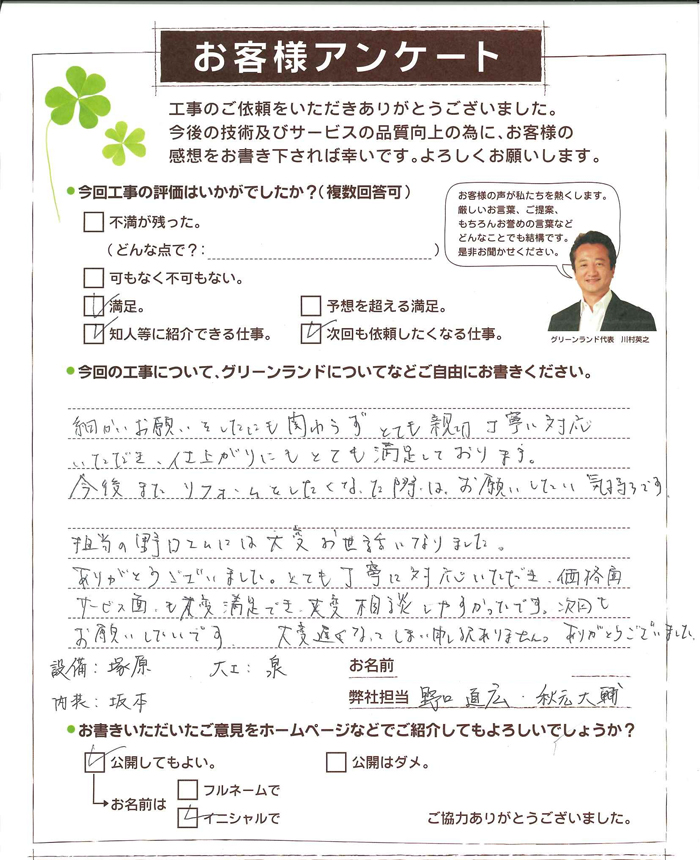 お客様アンケート
工事のご依頼をいただきありがとうございました。
今後の技術及びサービスの品質向上の為に、お客様の
感想をお書き下されば幸いです。よろしくお願いします。
●今回工事の評価はいかがでしたか?(複数回答可)
お客様の声が私たちを熱くします。
厳しいお言葉、ご提案、
もちろんお誉めの言葉など
どんなことでも結構です。
是非お聞かせください。
不満が残った。
(どんな点で?: )
可もなく不可もない。
満足。 予想を超える満足。
知人等に紹介できる仕事。 次回も依頼したくなる仕事。
グリーンランド代表 川村英之
●今回の工事について、グリーンランドについてなどご自由にお書きください。
細かいお願いをしたにも関わらず とても親切丁寧に対応
いただき、仕上がりにもとても満足しております。
今後またリフォームをしたくなった際は、お願いしたい気持ちです
担当の野口さんには大変お世話になりました。
ありがとうございました。とても丁寧に対応いただき、価格面
サービス面も大変満足でき、大変相談しやすかったです。次回も
お願いしたいです 大変遅くなってしまい申し訳ありません。ありがとうございました
設備:塚原 大工:泉 お名前
内装:坂本 弊社担当 野口直広・秋元大輔
●お書きいただいたご意見をホームページなどでご紹介してもよろしいでしょうか?
公開してもよい。 公開はダメ。
お名前は フルネームで
イニシャルで ご協力ありがとうございました。